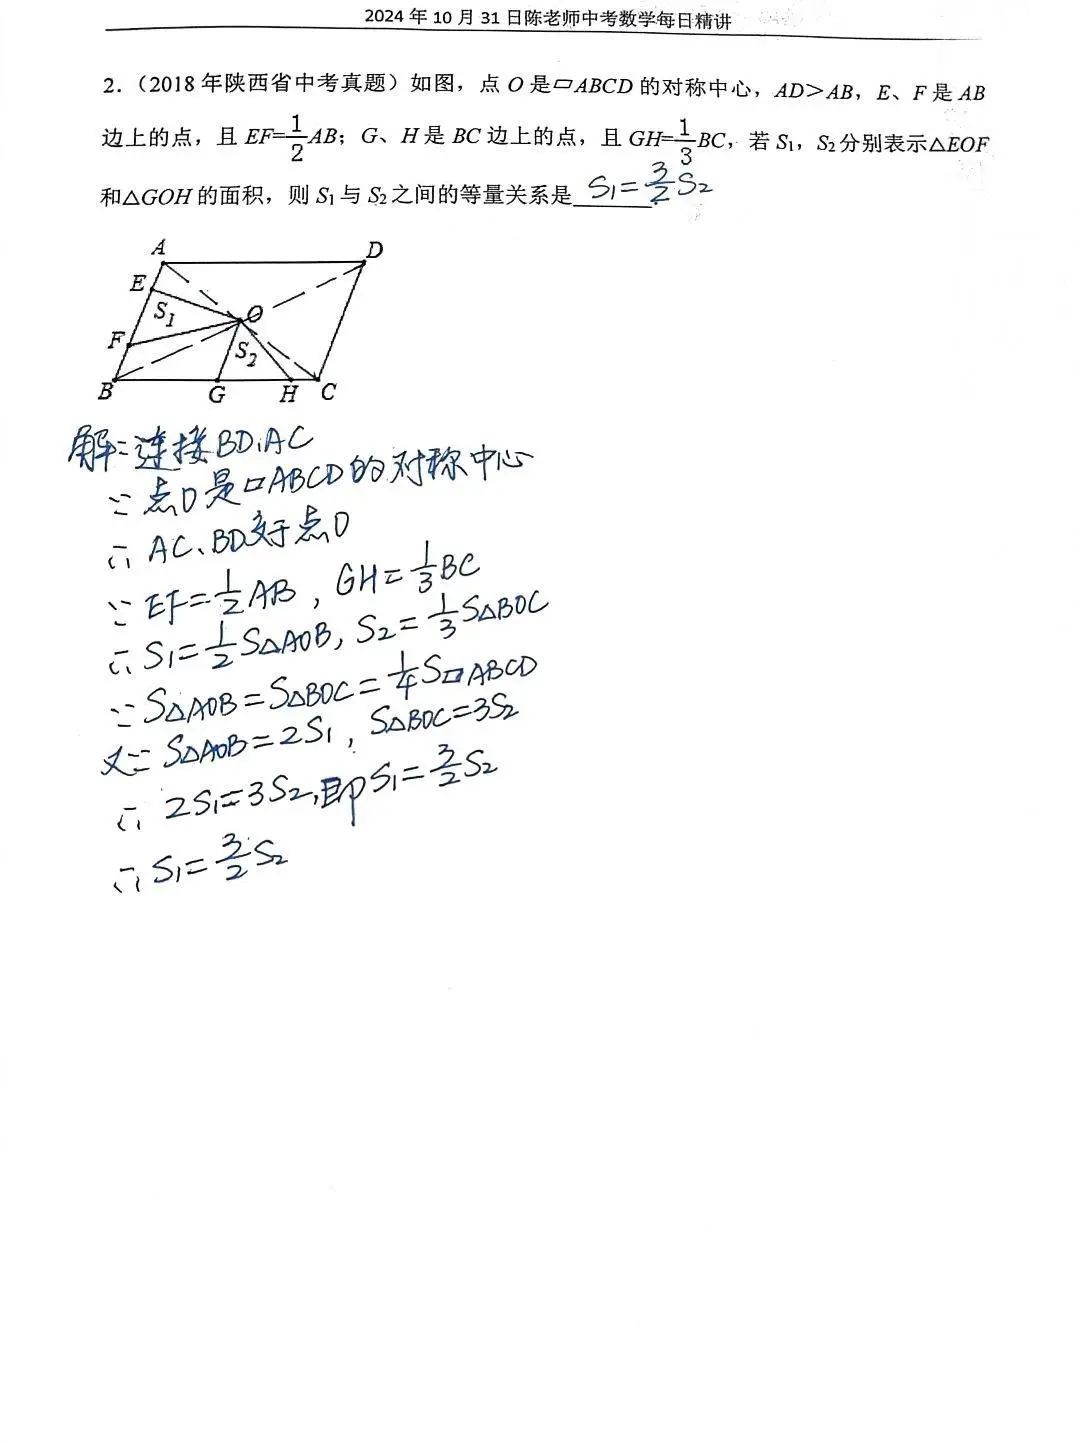 2024 年 10 月 31 日陈老师中考数学每日精讲
2.（2018 年陕西省中考真题）如图，点 O 是▱ABCD 的对称中心，AD＞AB，E、F 是 AB
边上的点，且 EF=1/2AB；G、H 是 BC 边上的点，且 GH=1/3BC，若 S₁，S₂分别表示△EOF
和△GOH 的面积，则 S₁与 S₂之间的等量关系是 S₁=3/2S₂
A D
E S₁ O
F S₂
B G H C
解：连接BD、AC
∵点O是▱ABCD的对称中心
∴AC、BD交于点O
∵EF=1/2AB，GH=1/3BC
∴S₁=1/2S△AOB，S₂=1/3S△BOC
∵S△AOB=S△BOC=1/4S▱ABCD
又∵S△AOB=2S₁，S△BOC=3S₂
∴2S₁=3S₂，即S₁=3/2S₂
∴S₁=3/2S₂